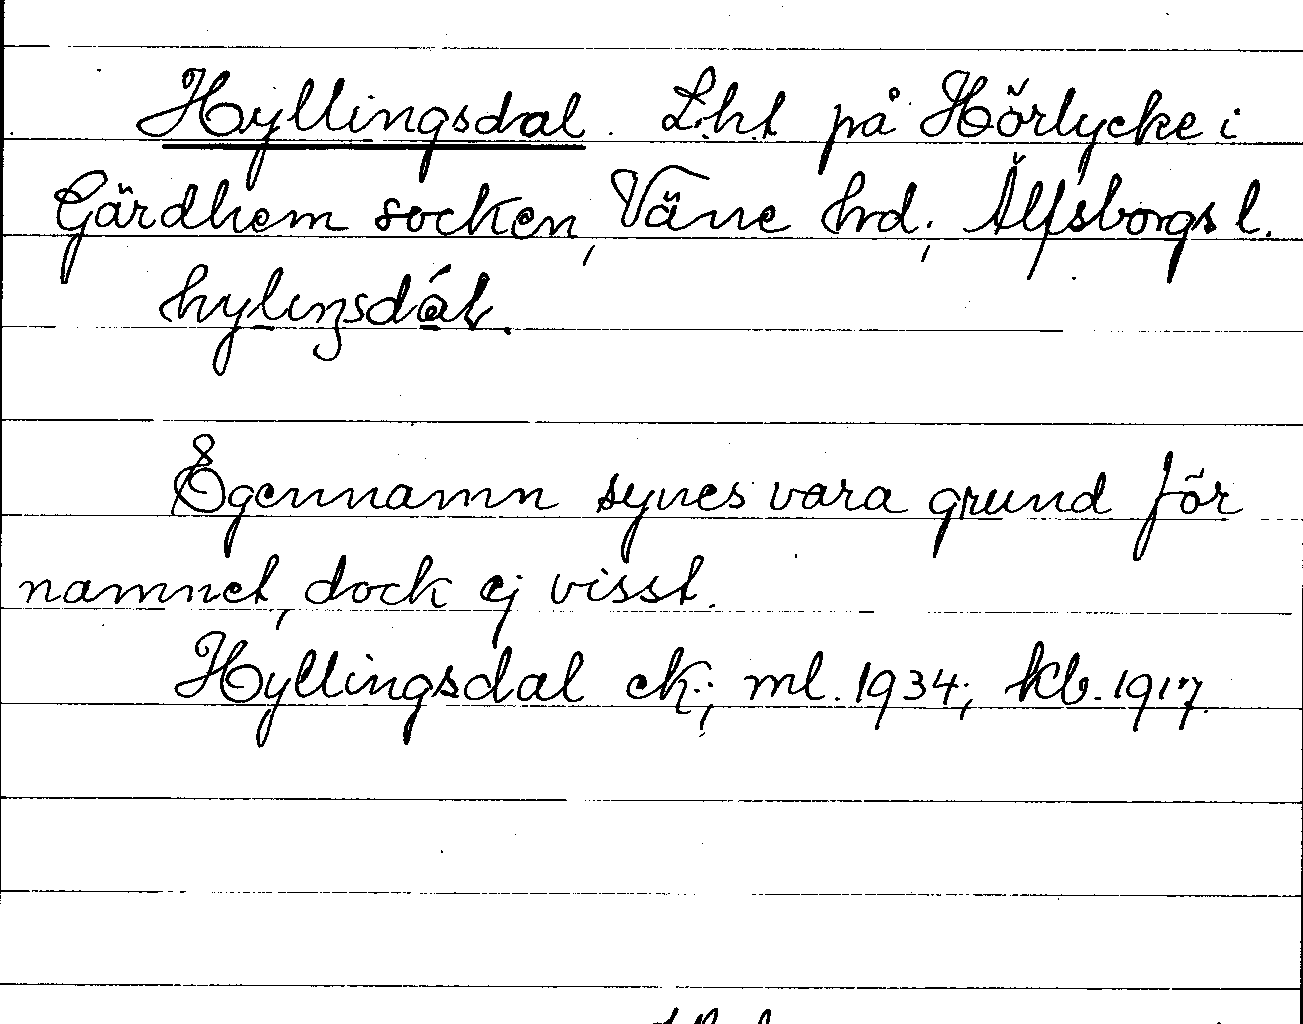 Hyllingsdal. L.h.t på Hörlycke i
Gärdhem socken, Väne hrd; Älfsborgs l.
hylıŋsdál.
Egennamn synes vara grund för
namnet, dock ej visst.
Hyllingsdal ek.; ml. 1934; kb. 1917.